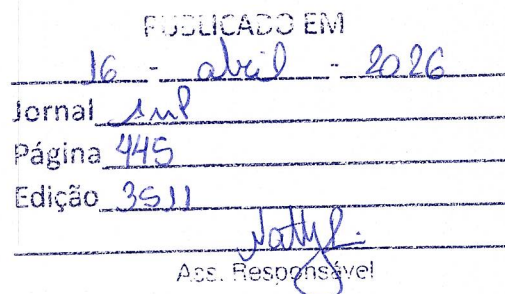 PUBLICADO EM
16 - abril - 2026
Jornal AMP
Página 445
Edição 3511
Ass. Responsável